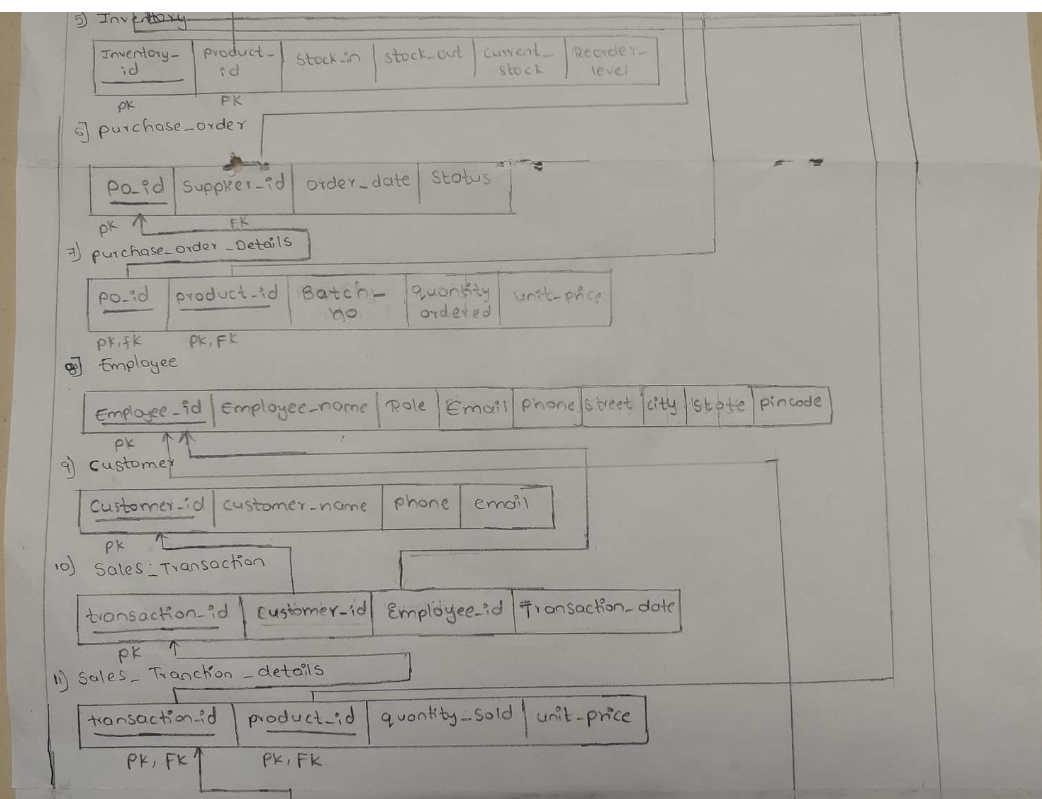 5) Inventory
Inventory_id product_id stock_in stock_out current_stock Reorder_level
PK FK
6] purchase_order
po_id Supplier_id order_date Status
PK FK
7) purchase_order_Details
po_id product_id Batch_no quantity ordered unit_price
PK,fK PK, FK
8] Employee
Employee_id Employee_name Role Email phone street city state pincode
PK
9) Customer
Customer_id customer_name phone email
PK
10) Sales_Transaction
transaction_id Customer_id Employee_id Transaction_date
PK
11) Sales_Tranction_details
transaction_id product_id quantity_sold unit_price
PK, FK PK, FK